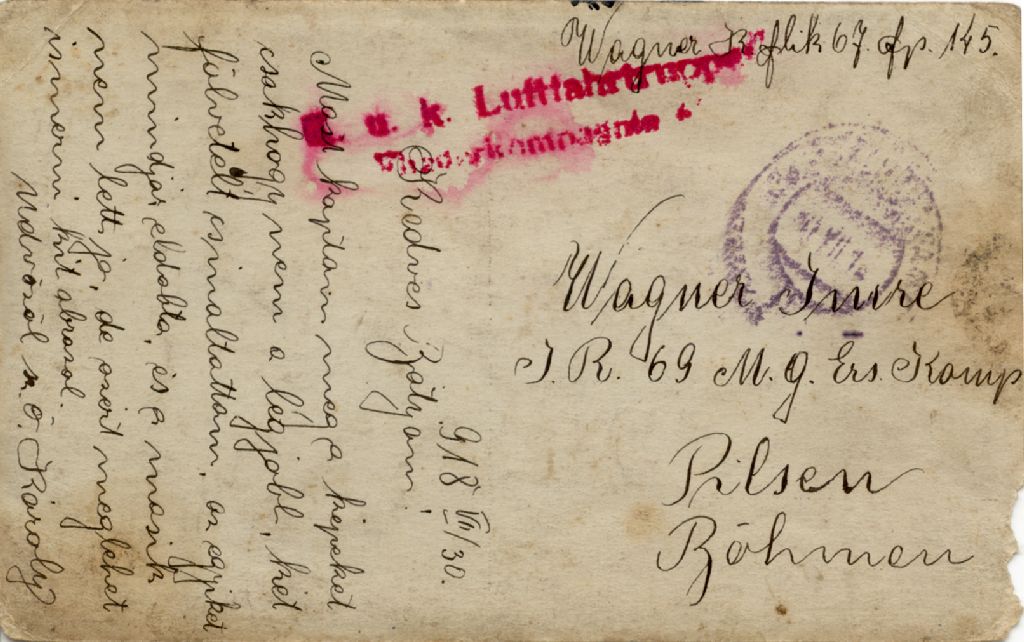 Wagner K flik 67. fp. 145.
k. u. k. Luftfahrtruppe
Fliegerkompagnie 6
Wagner Imre
I. R. 69 M. G. Ers. Komp
Pilsen
Böhmen
918 VII/30.
Kedves Bátyám!
Most kaptam meg a képeket
csakhogy nem a legjobb, két
fölvételt csináltattam, az egyiket
mindjár eldobta, és a másik
nem lett jó, de azért meglehet
ismerni kit ábrázol.
Üdvözöl sz. ö. Károly